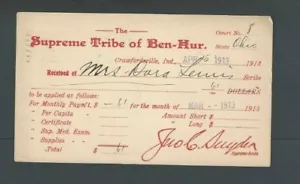 The
Court No. 8
State Ohio
Supreme Tribe of Ben-Hur.
Crawfordsville, Ind., APR 1913 1913
Received of Mrs Dora Lewis Scribe
61 DOLLARS
to be applied as follows:
For Monthly Paym't, $ 61 for the month of MAR - 1913 1913
" Per Capita " Amount Short $
" Certificate " " Long $
" Sup. Med. Exam. "
" Supplies "
Total $ 61
Jno C. Snyder
Supreme Scribe